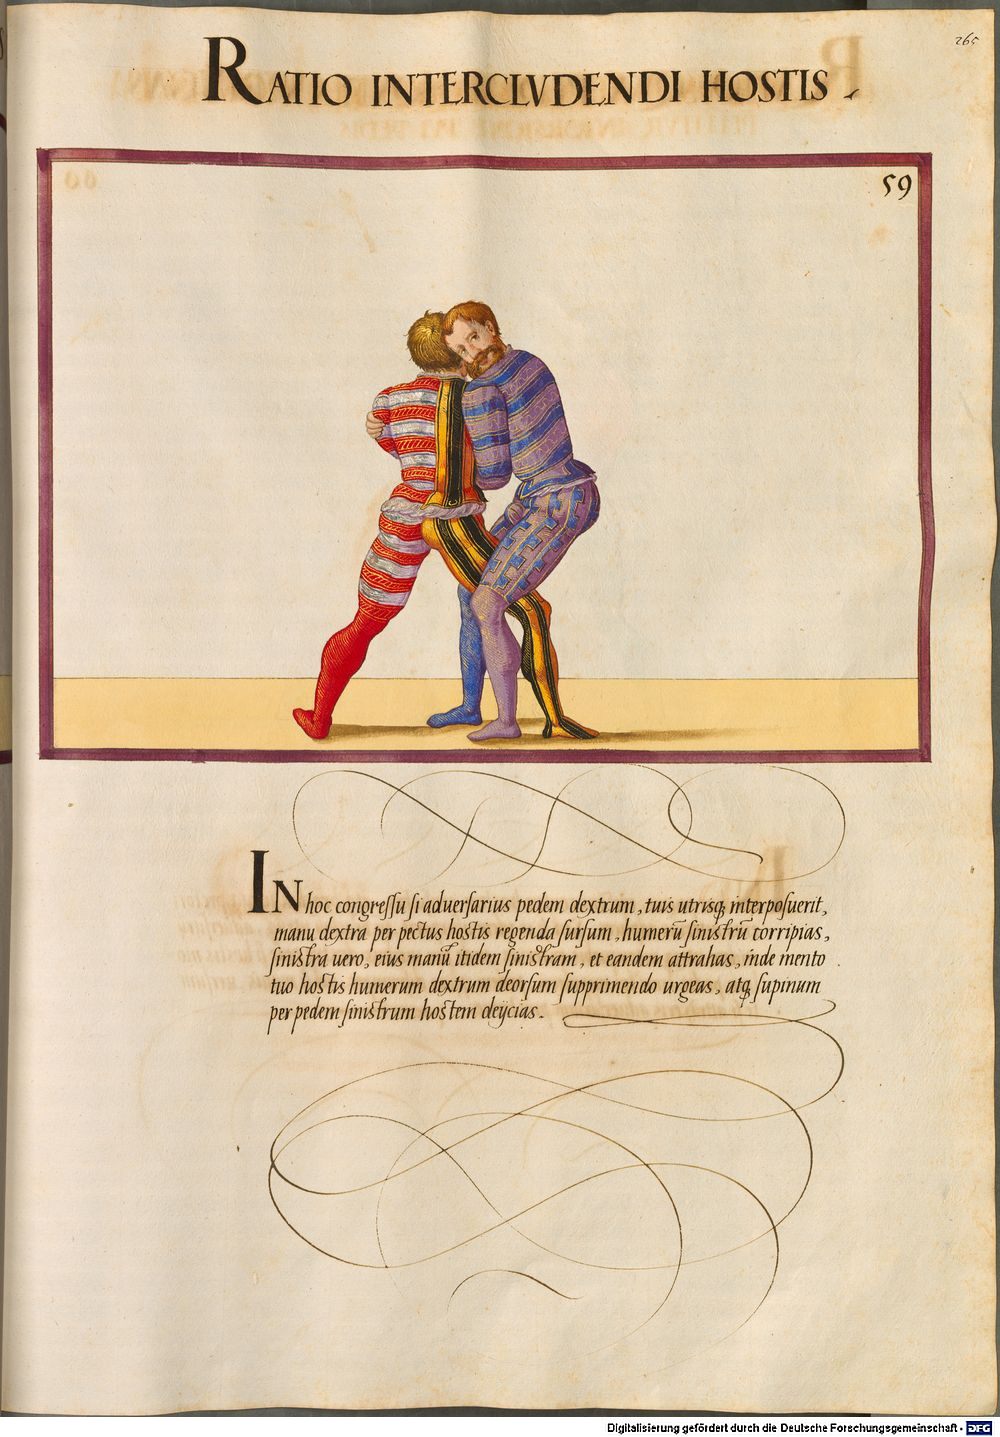 265
RATIO INTERCLVDENDI HOSTIS.
59
IN hoc congressu si aduersarius pedem dextrum, tuis utrisq; interposuerit,
manu dextra per pectus hostis regenda sursum, humerũ sinistrũ corripias,
sinistra uero, eius manũ itidem sinistram, et eandem attrahas, inde mento
tuo hostis humerum dextrum deorsum supprimendo urgeas, atq; supinum
per pedem sinistrum hostem deijcias.
Digitalisierung gefördert durch die Deutsche Forschungsgemeinschaft - DFG